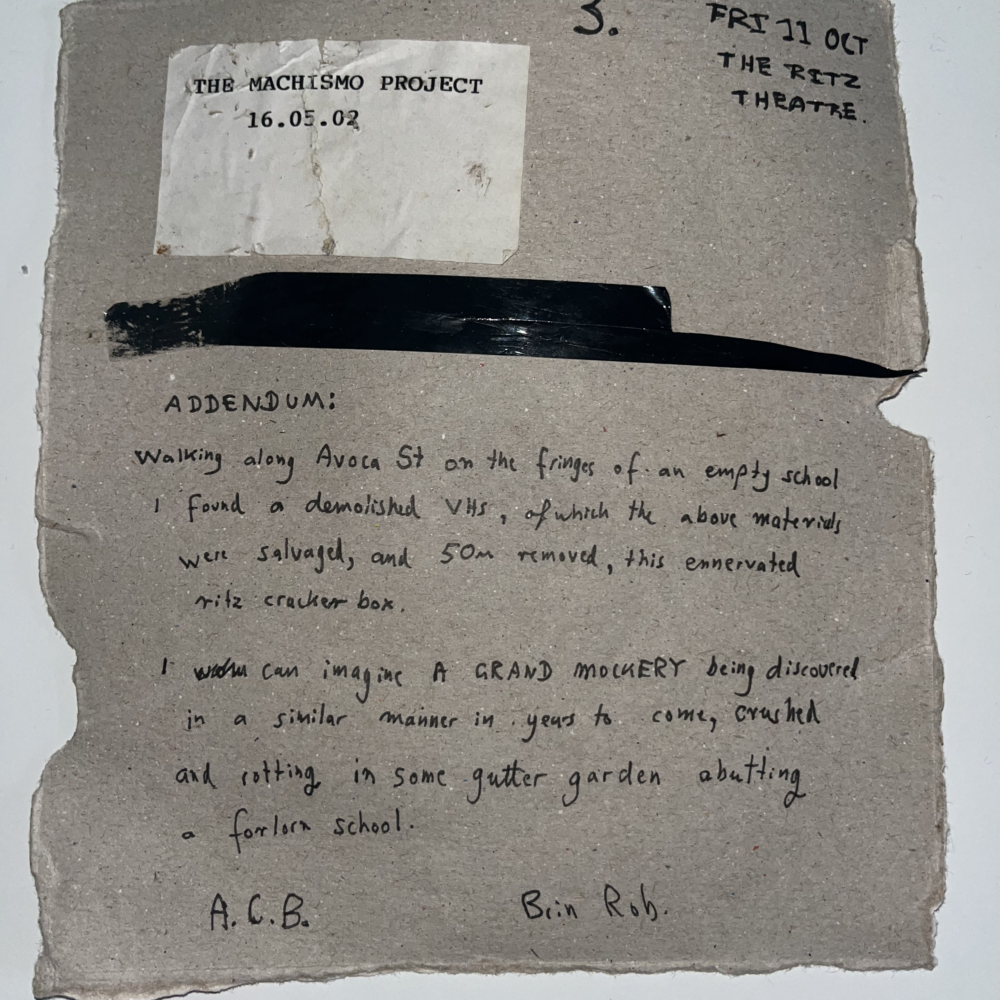 3.
FRI 11 OCT
THE RITZ
THEATRE.
THE MACHISMO PROJECT
16.05.02
ADDENDUM:
Walking along Avoca St on the fringes of an empty school
I found a demolished VHS, of which the above materials
were salvaged, and 50m removed, this ennervated
ritz cracker box.
I can imagine A GRAND MOCKERY being discovered
in a similar manner in years to come, crushed
and rotting in some gutter garden abutting
a forlorn school.
A.C.B. Brin Rob.